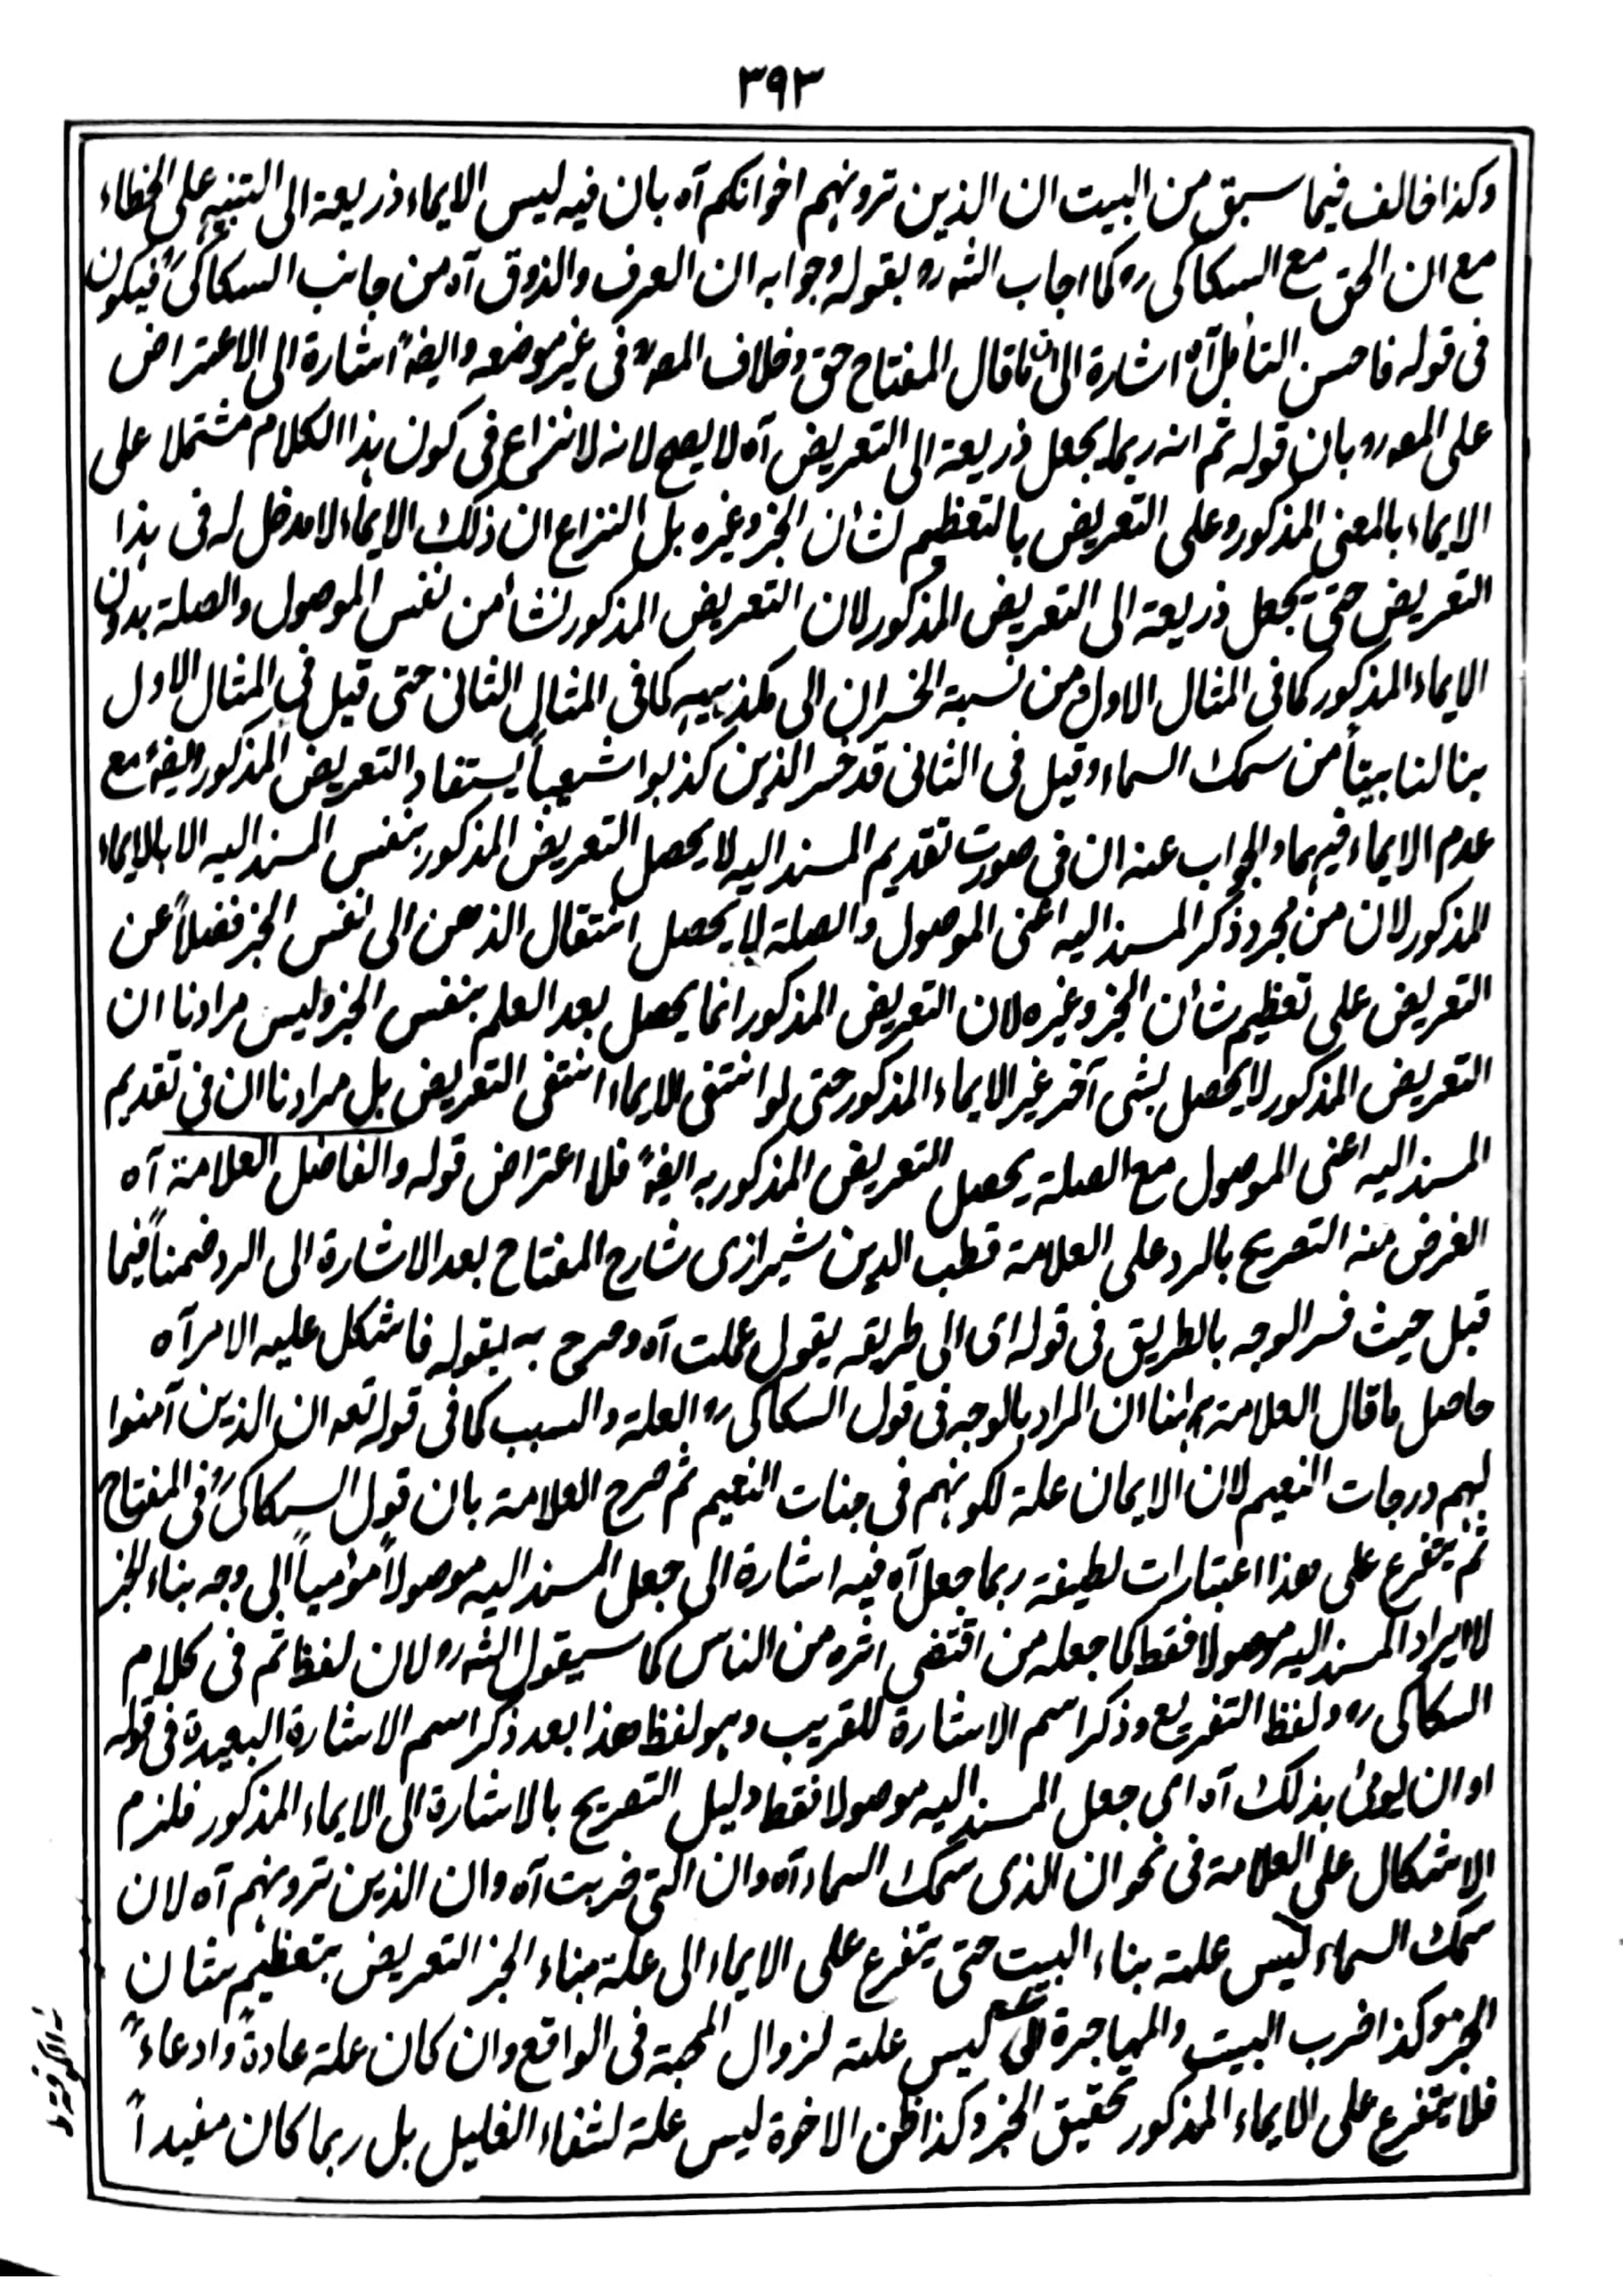 ٣٩٣
وكذا خالف فيما سبق من البيت ان الذين ترونهم اخوانكم آه بان فيه ليس الايماء ذريعة الى التنبيه على الخطاء
مع ان الحق مع السكاكى ره كما اجاب الشه ره بقوله وجوابه ان العرف والذوق آه من جانب السكاكىؒ فيكون
فى قوله فاحسن التأمل آه اشارة الى ان ما قال المفتاح حق وخلاف المصره فى غير موضعه وايضاً اشارة الى الاعتراض
على المصره بان قوله ثم انه ربما يجعل ذريعة الى التعريض آه لا يصح لانه لا نزاع فى كون هذا الكلام مشتملا على
الايماء بالمعنى المذكور وعلى التعريض بالتعظيم لشأن الخبر وغيره بل النزاع ان ذلك الايماء لا مدخل له فى هذا
التعريض حتى يجعل ذريعة الى التعريض المذكور لان التعريض المذكور نشأ من نفس الموصول والصلة بدون
الايماء المذكور كما فى المثال الاول ومن نسبة الخسران الى مكذبيه كما فى المثال الثانى حتى قيل فى المثال الاول
بنا لنا بيتاً من سمك السماء وقيل فى الثانى قد خسر الذين كذبوا شعيباً يستفاد التعريض المذكور ايضاً مع
عدم الايماء فيهما والجواب عنه ان فى صورت تقديم المسند اليه لا يحصل التعريض المذكور بنفس المسند اليه الا بالايماء
المذكور لان من مجرد ذكر المسند اليه اعنى الموصول والصلة لا يحصل انتقال الذهن الى نفس الخبر فضلاً عن
التعريض على تعظيم شأن الخبر وغيره لان التعريض المذكور انما يحصل بعد العلم بنفس الخبر وليس مرادنا ان
التعريض المذكور لا يحصل بشى آخر غير الايماء المذكور حتى لو انتفى الايماء انتفى التعريض بل مرادنا ان فى تقديم
المسند اليه اعنى الموصول مع الصلة يحصل التعريض المذكور به ايضاً فلا اعتراض قوله والفاضل العلامة آه
الغرض منه التصريح بالرد على العلامة قطب الدين شيرازى شارح المفتاح بعد الاشارة الى الرد ضمناً فيما
قبل حيث فسر الوجه بالطريق فى قوله اى الى طريقه يقول عملت آه وصرح به بقوله فاشكل عليه الامر آه
حاصل ما قال العلامة ههنا ان المراد بالوجه فى قول السكاكى ره العلة والسبب كما فى قوله تعه ان الذين آمنوا
لهم درجات النعيم لان الايمان علة لكونهم فى جنات النعيم ثم صرح العلامة بان قول السكاكىؒ فى المفتاح
ثم يتفرع على هذا اعتبارات لطيفة ربما جعل آه فيه اشارة الى جعل المسند اليه موصولاً مؤمياً الى وجه بناء الخبر
لا ايراد المسند اليه موصولا فقط كما جعله من اقتفى اثره من الناس كما سيقول الشه ره لان لفظ ثم فى كلام
السكاكى ره ولفظ التفريع وذكر اسم الاشارة للقريب وهو لفظ هذا بعد ذكر اسم الاشارة البعيدة فى قوله
او ان يومئ بذلك آه اى جعل المسند اليه موصولا فقط دليل التصريح بالاشارة الى الايماء المذكور فلزم
الاشكال على العلامة فى نحو ان الذى سمك السماء آه وان التى ضربت آه وان الذين ترونهم آه لان
سمك السماء ليس علة بناء البيت حتى يتفرع على الايماء الى علة بناء الخبر التعريض بتعظيم شان
الخبر وكذا ضرب البيت والمهاجرة ليس علة لزوال المحبة فى الواقع وان كان علة عادةً وادعاءً
فلا يتفرع على الايماء المذكور تحقيق الخبر وكذا ظن الاخوة ليس علة لشفاء الغليل بل ربما كان مفيداً